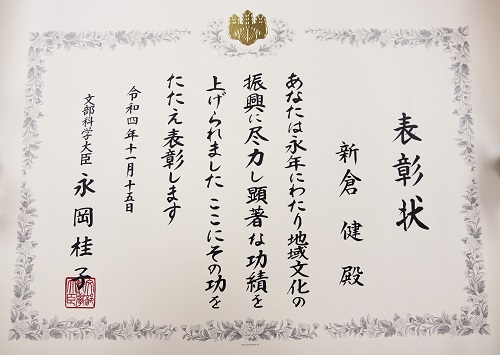 表彰状
新倉 健 殿
あなたは永年にわたり地域文化の
振興に尽力し顕著な功績を
上げられました ここにその功を
たたえ表彰します
令和四年十一月十五日
文部科学大臣 永岡桂子